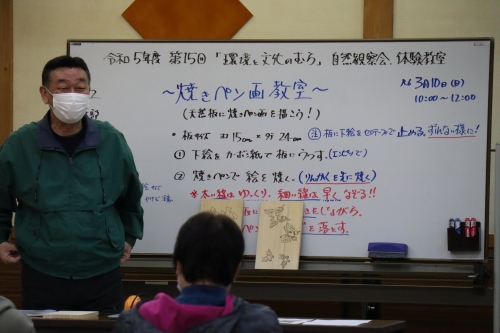 令和5年度 第15回「環境と文化のむら」自然観察会、体験教室
～焼きペン画教室～
R6 3月10日(日)
10:00～12:00
(天然板に焼きペン画を描こう!)
• 板サイズ ヨコ15cm × タテ24cm
注 板に下絵をセロテープで止める。ずれない様に!
① 下絵をカーボン紙で板にうつす。(エンピツで)
② 焼きペンで絵を焼く。(りんかくを主に焼く)
※太い線はゆっくり、細い線は早くなぞる!!
をしながら。
を落とす。